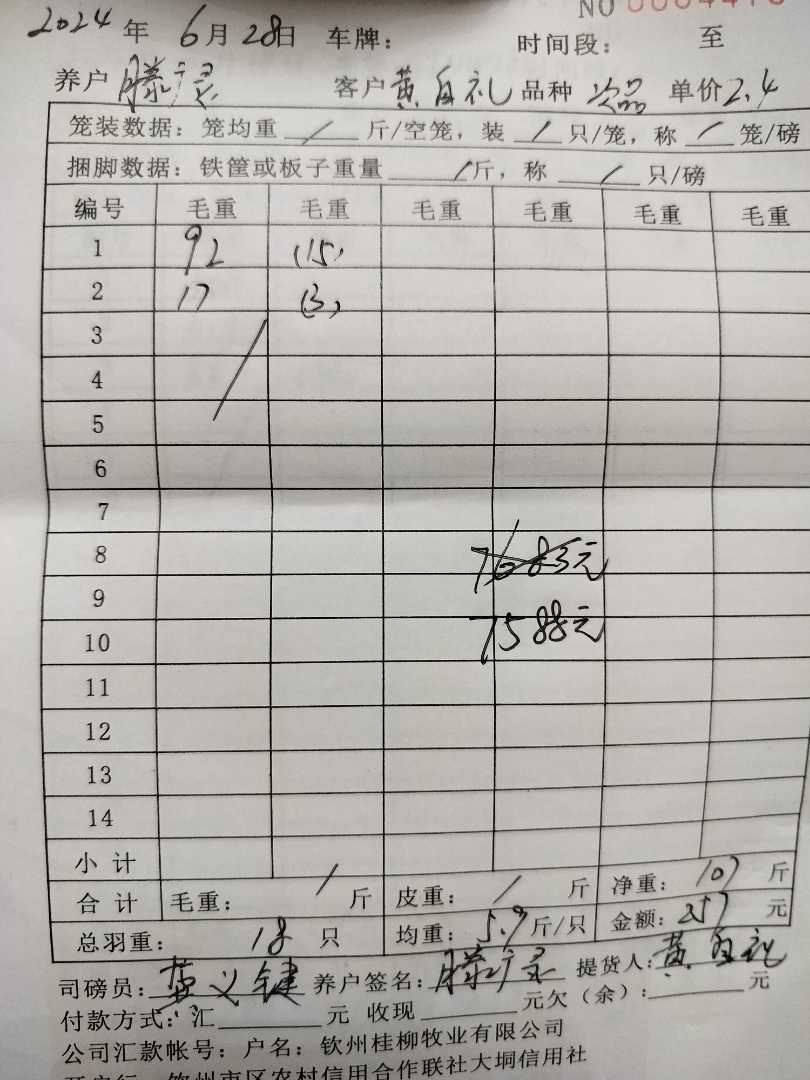 NO
2024 年 6月 28日 车牌: 时间段: 至
养户 滕广灵 客户 黄自礼 品种 次品 单价2.4
笼装数据: 笼均重 / 斤/空笼, 装 / 只/笼, 称 / 笼/磅
捆脚数据: 铁筐或板子重量 / 斤, 称 / 只/磅
编号 毛重 毛重 毛重 毛重 毛重 毛重
1 92 (15)
2 17 (3)
3
4
5
6
7
8 7683元
9
10 7588元
11
12
13
14
小计
合计 毛重: / 斤 皮重: / 斤 净重: 107 斤
总羽重: 18 只 均重: 5.9 斤/只 金额: 257 元
司磅员: 义键 养户签名: 滕广灵 提货人: 黄自礼
付款方式: 汇 元 收现 元欠(余): 元
公司汇款帐号: 户名: 钦州桂柳牧业有限公司
钦州市区农村信用合作联社大垌信用社